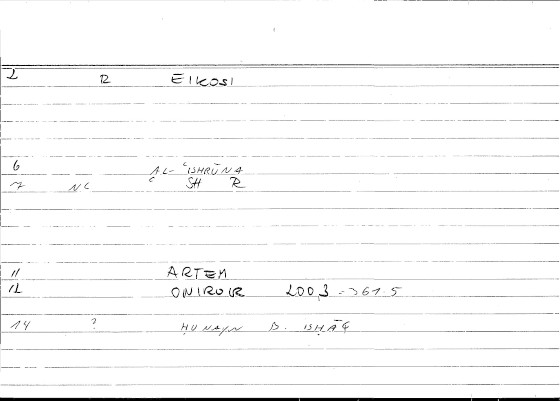 2 R EIKOSI
6 AL-ʿISHRŪNA
7 NC ʿ SH R
11 ARTEM
12 ONIROKR 200,3 - 361.5
14 ? ḤUNAYN B. ISḤĀQ